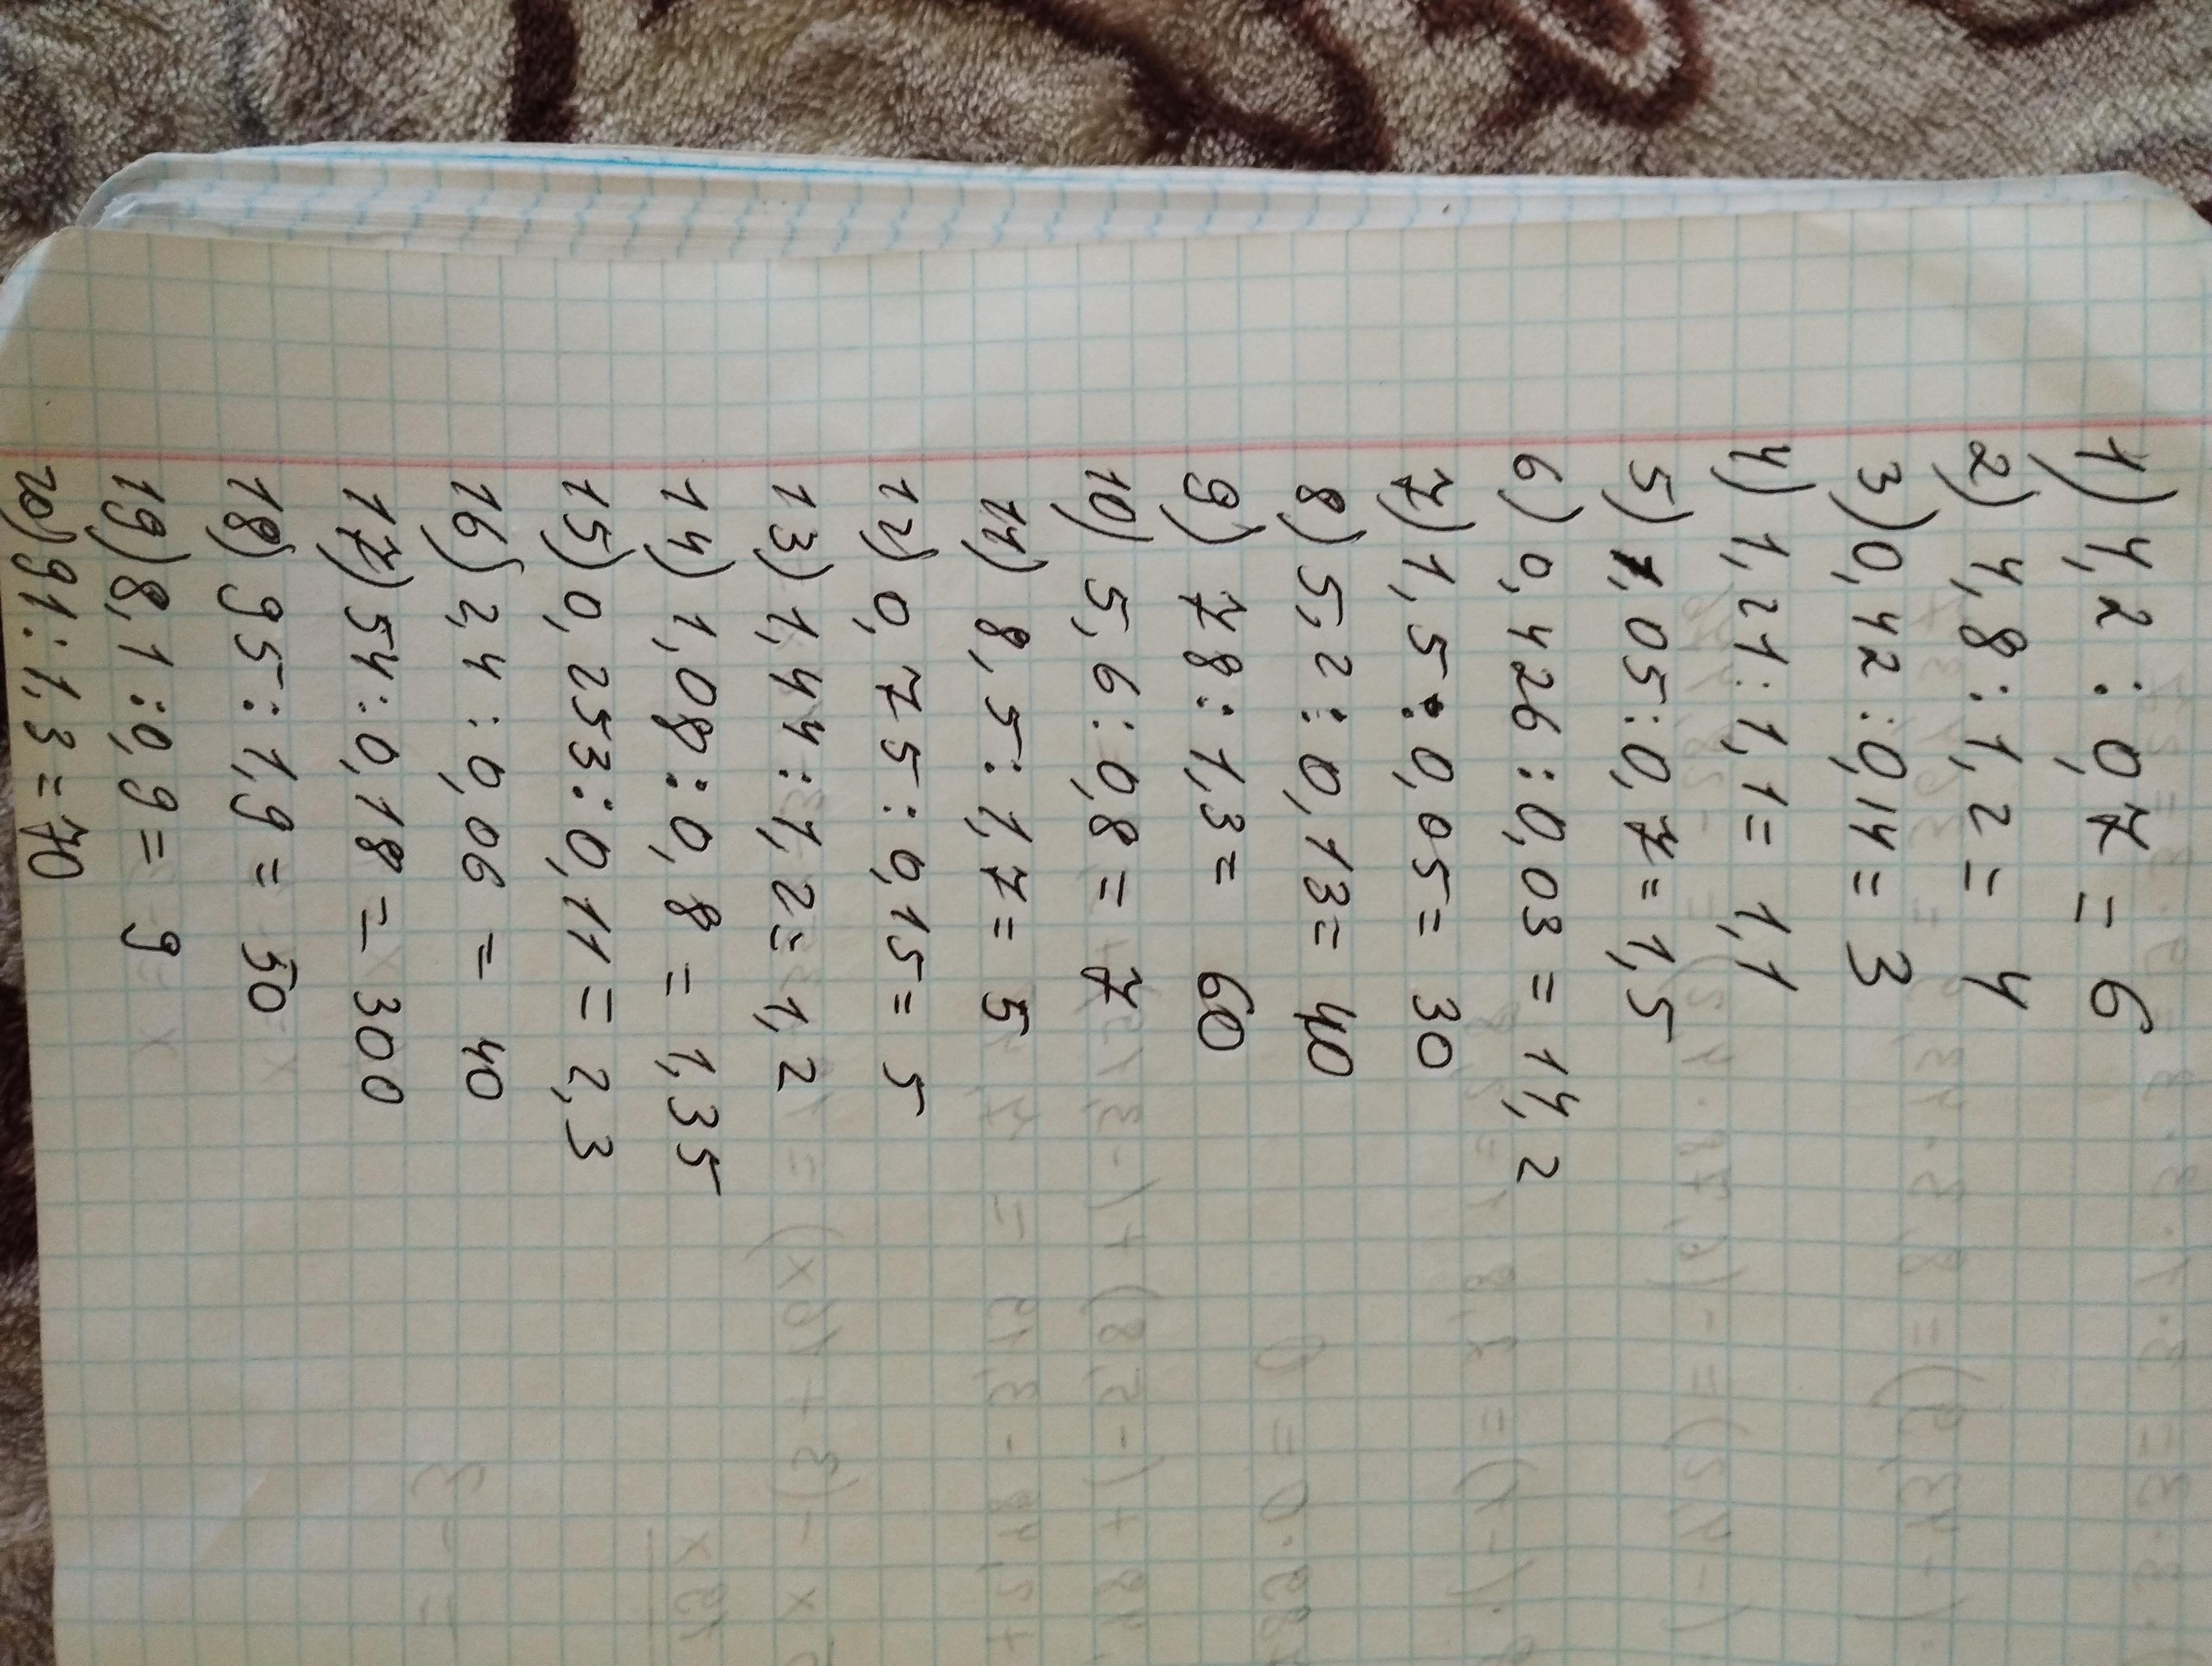 1) 4,2 : 0,7 = 6
2) 4,8 : 1,2 = 4
3) 0,42 : 0,14 = 3
4) 1,21 : 1,1 = 1,1
5) 1,05 : 0,7 = 1,5
6) 0,426 : 0,03 = 14,2
7) 1,5 : 0,05 = 30
8) 5,2 : 0,13 = 40
9) 78 : 1,3 = 60
10) 5,6 : 0,8 = 7
11) 8,5 : 1,7 = 5
12) 0,75 : 0,15 = 5
13) 1,44 : 1,2 = 1,2
14) 1,08 : 0,8 = 1,35
15) 0,253 : 0,11 = 2,3
16) 2,4 : 0,06 = 40
17) 54 : 0,18 = 300
18) 95 : 1,9 = 50
19) 8,1 : 0,9 = 9
20) 91 : 1,3 = 70